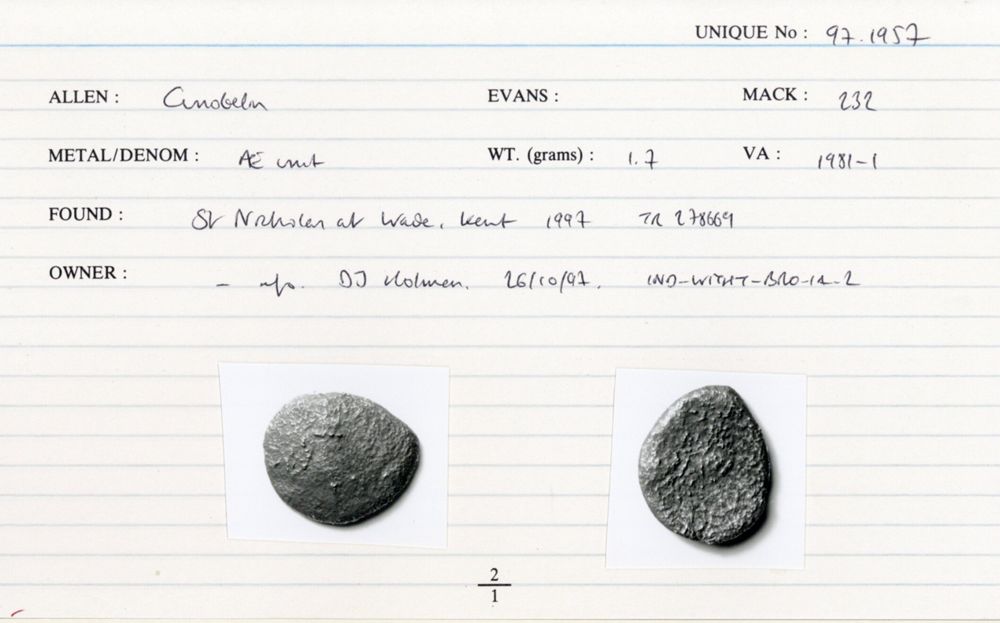 UNIQUE No : 97.1957
ALLEN : Cunobelin EVANS : MACK : 232
METAL/DENOM : Æ unit WT. (grams) : 1.7 VA : 1981-1
FOUND : St Nicholas at Wade, Kent 1997 TR 278669
OWNER : - info. DJ Holman. 26/10/97. IND-WITHT-BRO-IA-2
2
1